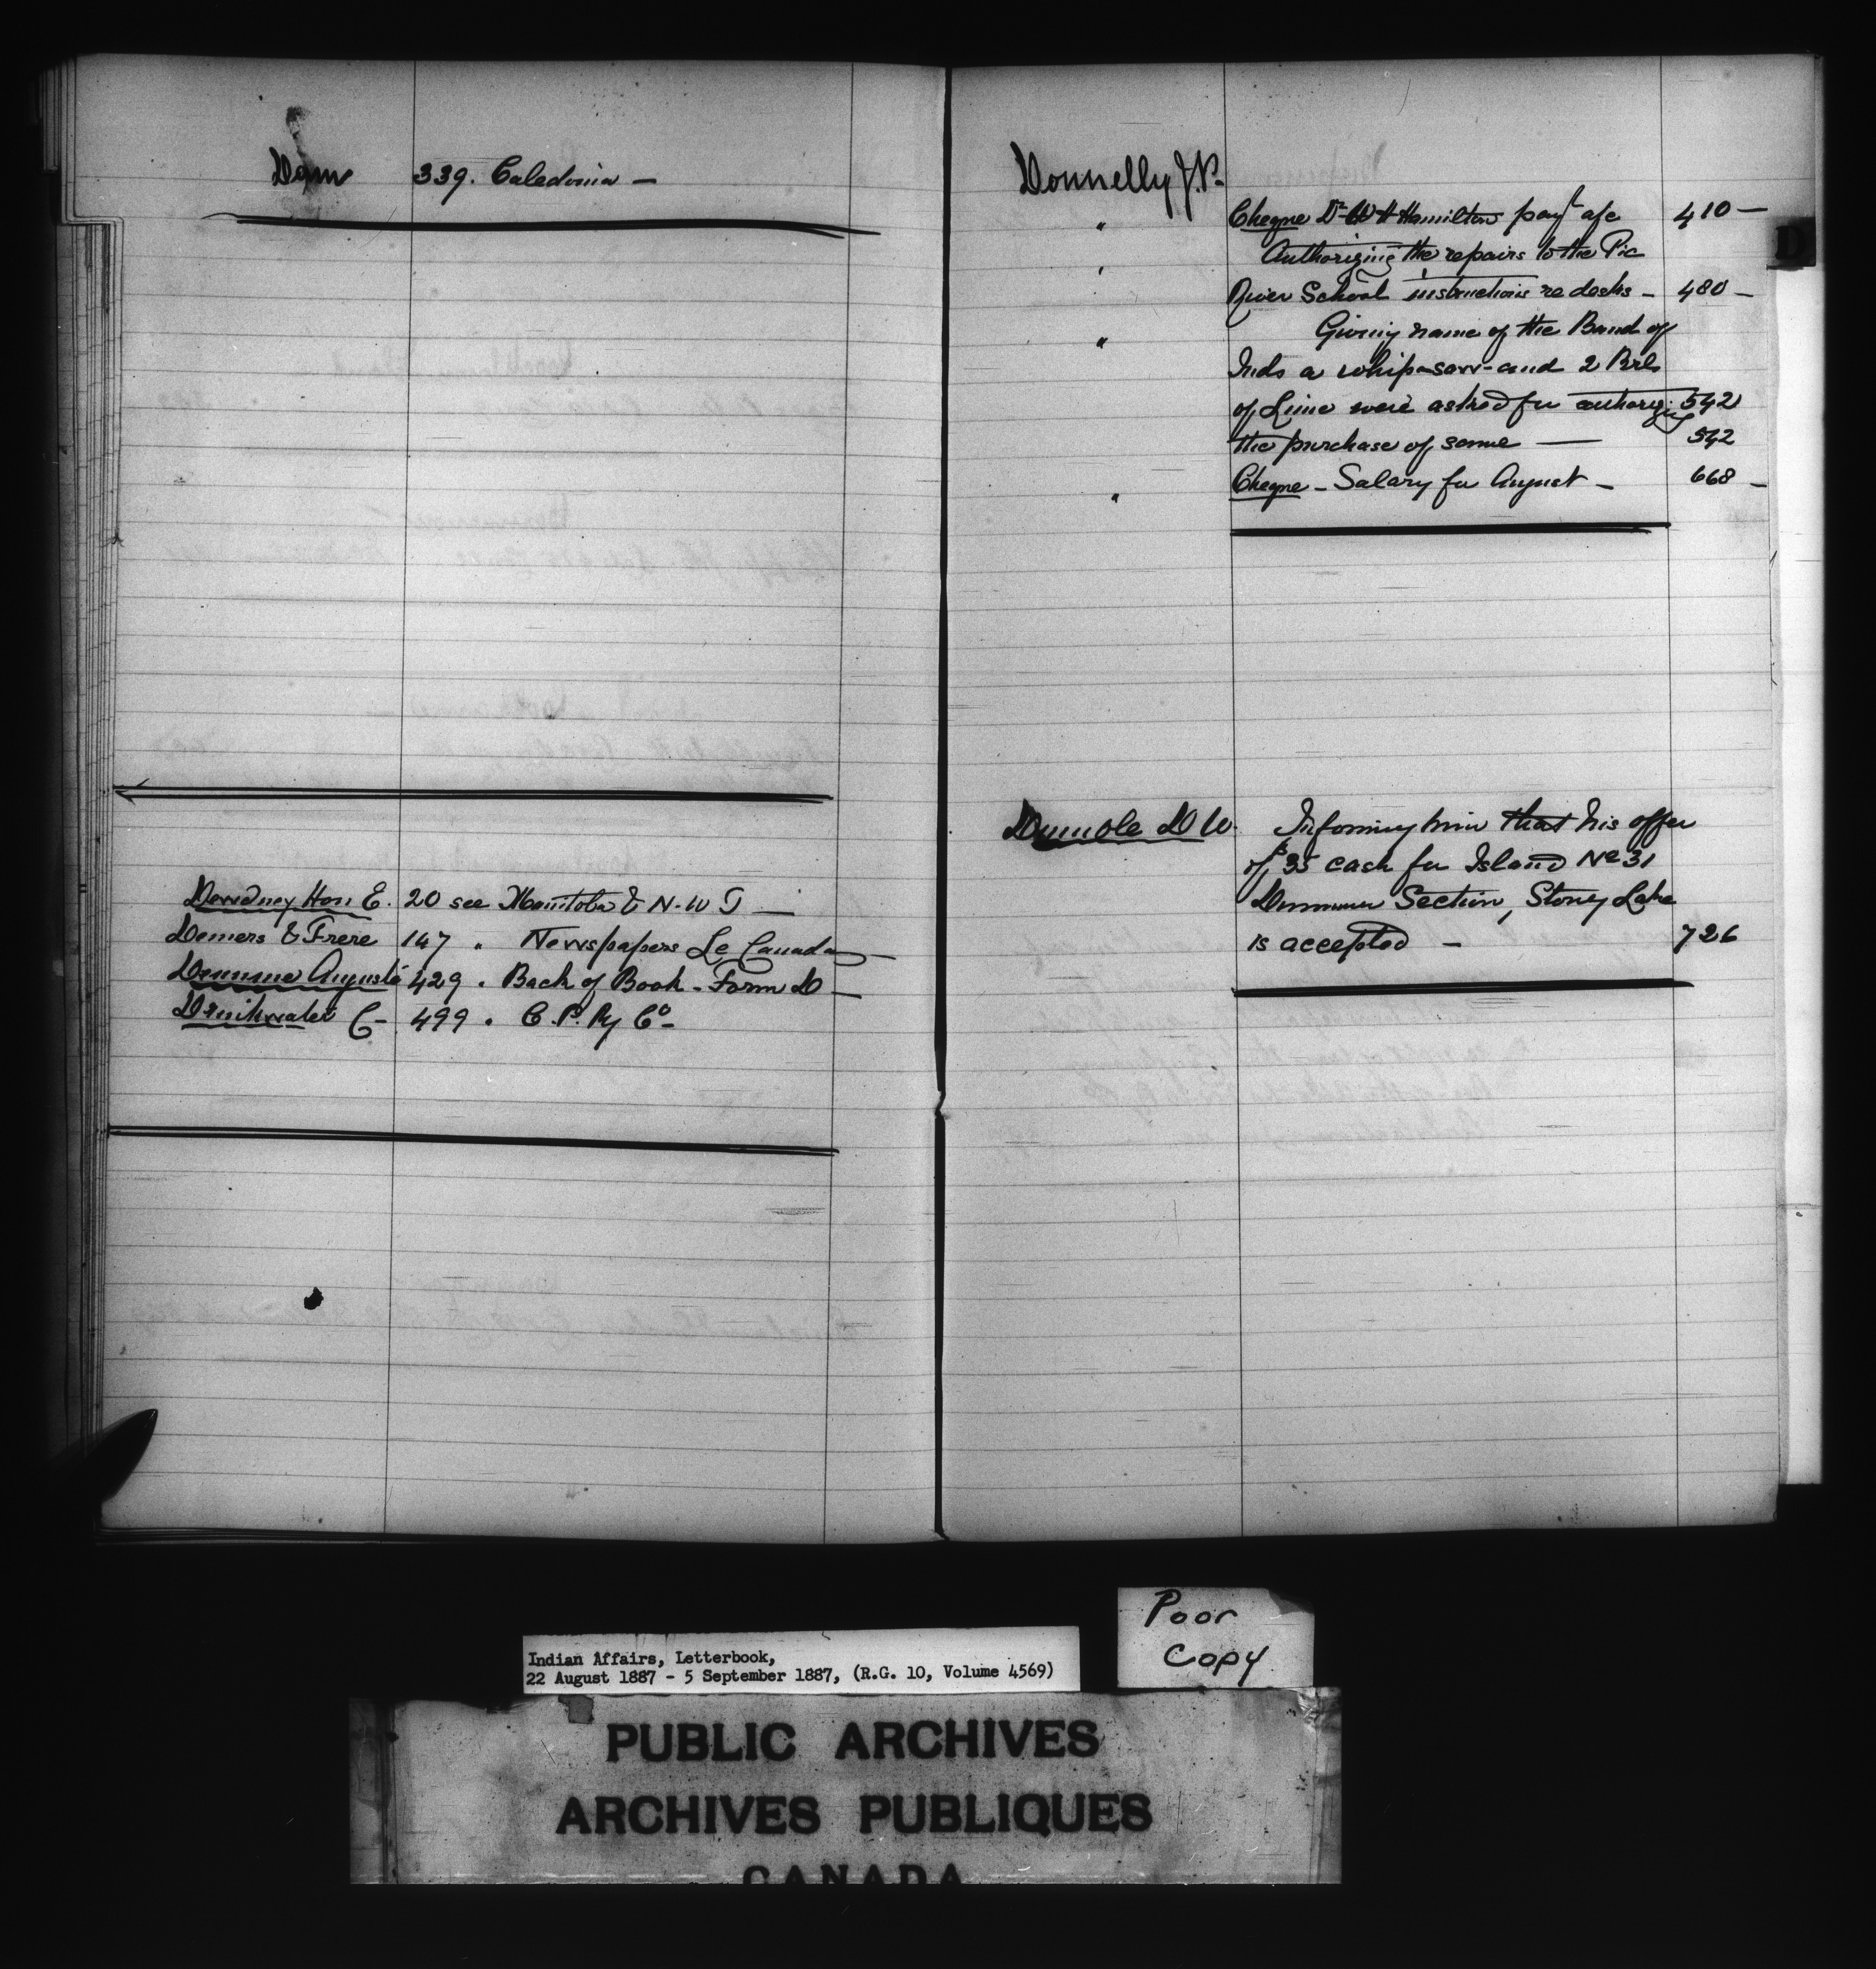 Dam 339. Caledonia —
Dewdney Hon E. 20 see Manitoba & N. W T —
Demers & Frere 147 " Newspapers Le Canada —
Auguste 429 " Back of Book - Form D —
Drinkwater C - 499 " C. P. Ry Co -
Donnelly J. P.
" Cheque Dr W H Hamilton payt a/c 410 —
" Authorizing the repairs to the Pic
River School instructions re desks - 480 —
" Giving name of the Band of
Inds a whip-saw - and 2 Brls
of Lime were asked for authorizing 542
the purchase of same — 542
" Cheque - Salary for August - 668 —
Dumble D W. Informing him that his offer
of $35 cash for Island No 31
Dummer Section, Stoney Lake
is accepted - 726
D
Poor
Copy
Indian Affairs, Letterbook,
22 August 1887 - 5 September 1887, (R.G. 10, Volume 4569)
PUBLIC ARCHIVES
ARCHIVES PUBLIQUES
CANADA